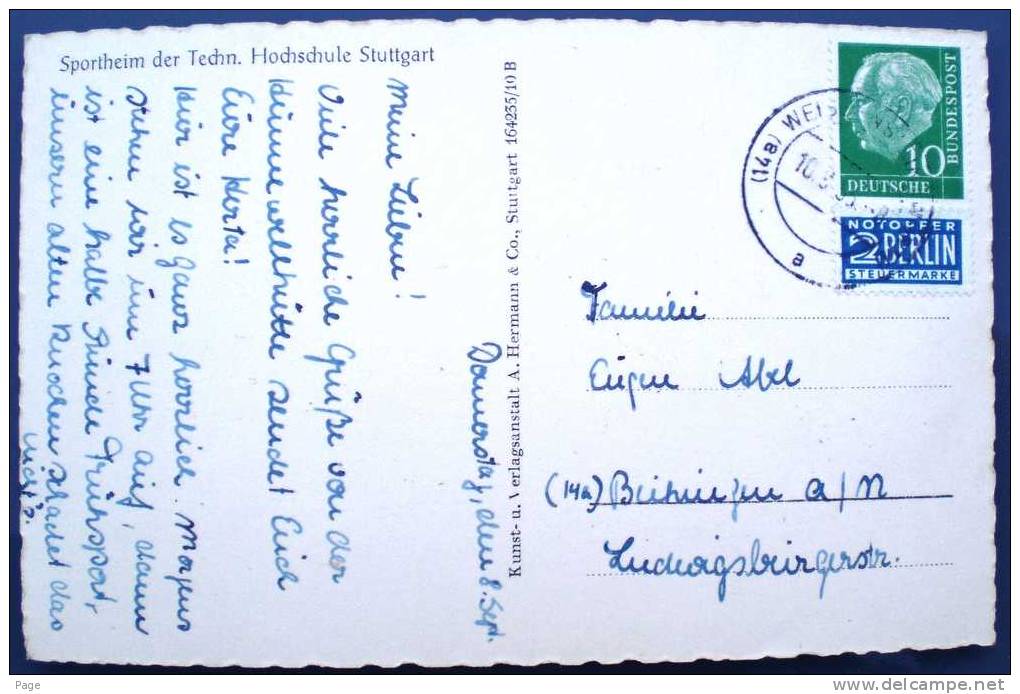 Sportheim der Techn. Hochschule Stuttgart
Donnerstag, den 8. Sept.
Meine Lieben!
Viele herrliche Grüße von der
sendet Euch
Eure Herta!
Hier ist es ganz herrlich. Morgens
stehen wir um 7 Uhr auf, dann
ist eine halbe Stunde Frühsport,
unseren alten Knochen schadet das
nichts.
Kunst- u. Verlagsanstalt A. Hermann & Co., Stuttgart 164235/10 B
10
DEUTSCHE
BUNDESPOST
NOTOPFER
2 BERLIN
STEUERMARKE
(14a) WEIS
10.
a
Familie
Eugen Abel
(14a) Beihingen a/N
Ludwigsburgerstr.
Page
www.delcampe.net